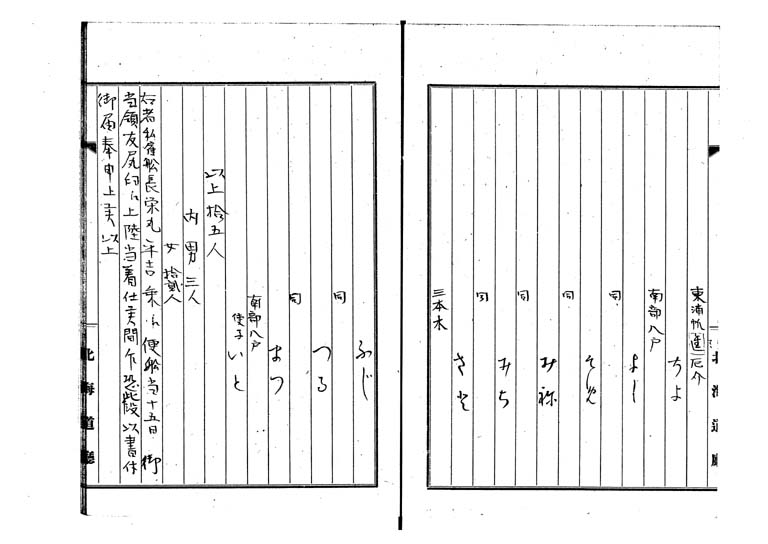 東浦帆厄介
ちよ
南部八戸
よし
同
そめ
同
み祢
同
みち
同
さと
三本木
北海道廳
ふじ
同
つる
同
まつ
南部八戸
使子いと
以上拾五人
内男三人
女拾貳人
右者私雇船長栄丸幸吉乗ニ便船当十五日御
当領友尻へ上陸当着仕候間乍恐此段以書付
御届奉申上候以上
北海道廳